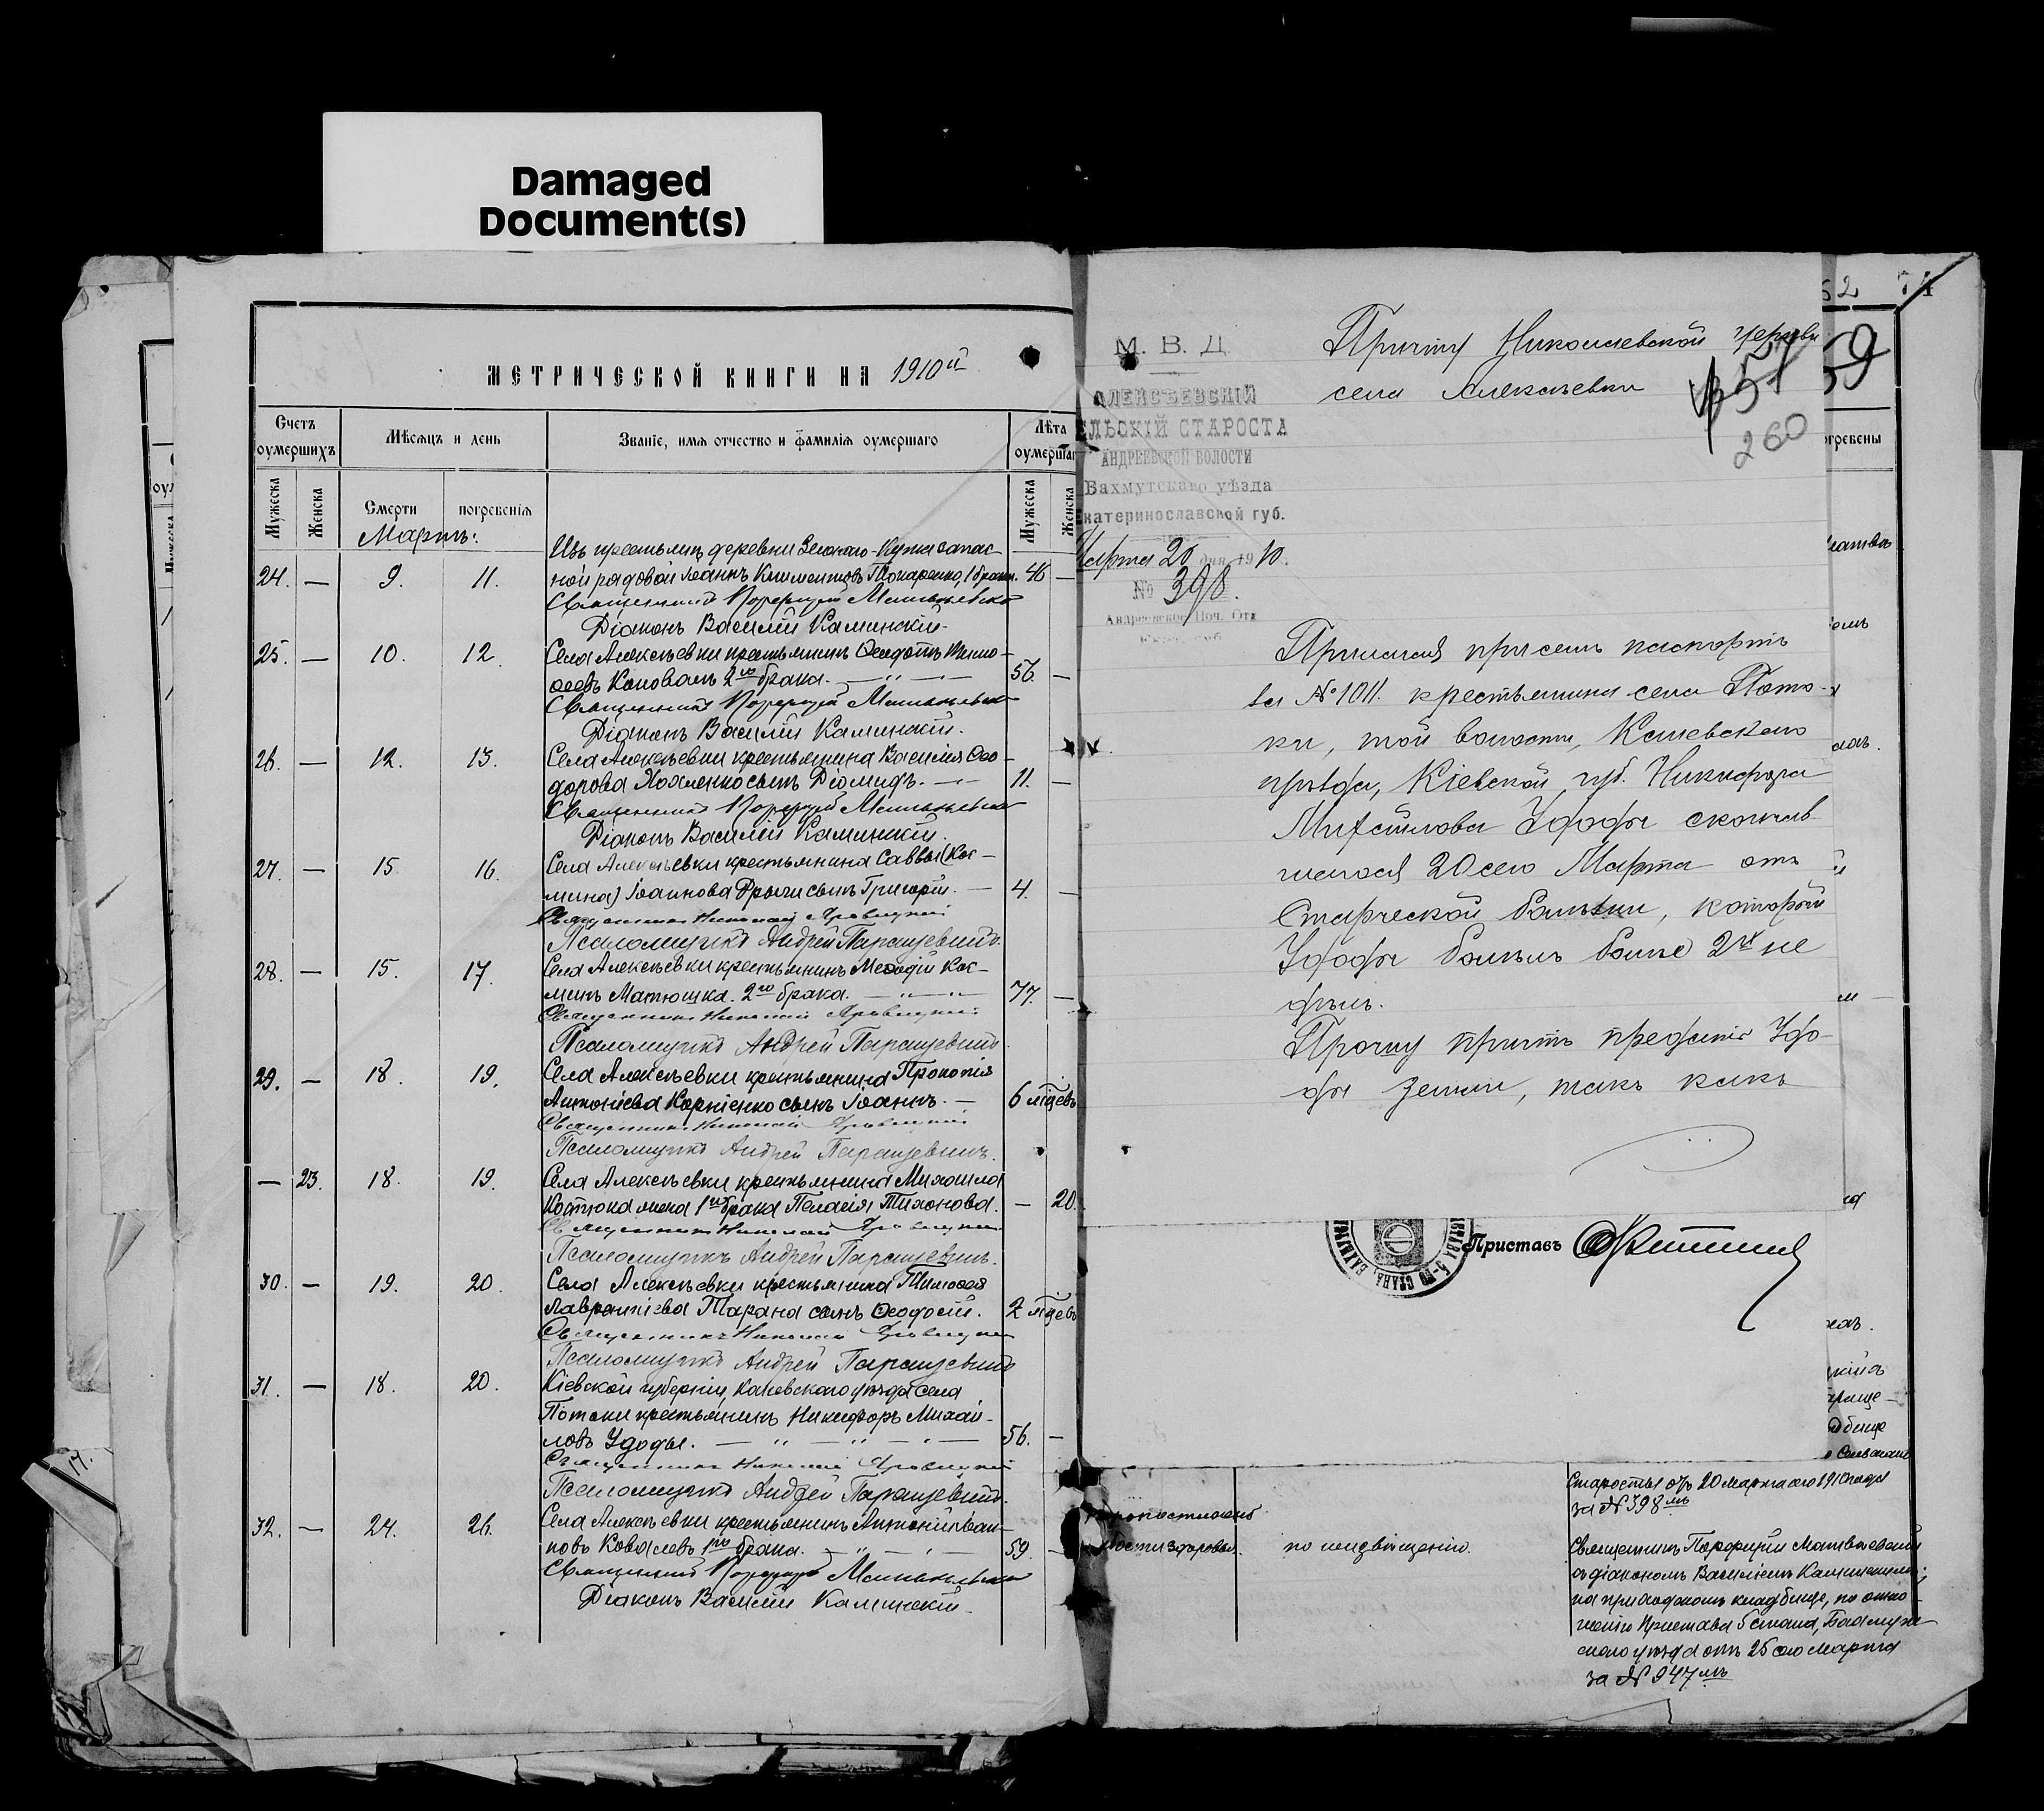 Damaged
Document(s)
МЕТРИЧЕСКОЙ КНИГИ НА 1910й
Счетъ оумершихъ
Мѣсяцъ и день
Званіе, имя отчество и фамилія оумершаго
Лѣта оумершаг
Мужеска
Женска
Смерти
погребенія
Мужеска
Женска
Мартъ:
Изъ крестьянъ деревни Зеленаго-Кута запас-
24. — 9. 11. ной рядовой Іоаннъ Климентовъ Токаренко, 1 брака. 46 —
Священникъ Порфирій
Діаконъ Василій Каминскій.
25. — 10. 12. Села Алексѣевки крестьянинъ Ѳеодотъ Тимо-
ѳеевъ Коновалъ 2го брака. 56. —
Священникъ Порфирій
Діаконъ Василій Каминскій.
26. — 12. 13. Села Алексѣевки крестьянина Василія Ѳео-
дорова сынъ Діомидъ. 11. —
Священникъ Порфирій
Діаконъ Василій Каминскій.
27. — 15. 16. Села Алексѣевки крестьянина Саввы (Кос-
мина) Іоаннова сынъ Григорій. — 4. —
Священникъ Николай
Псаломщикъ Андрей
28. — 15. 17. Села Алексѣевки крестьянинъ Меѳодій Кос-
минъ Матюшка. 2го брака. 77. —
Священникъ Николай
Псаломщикъ Андрей
29. — 18. 19. Села Алексѣевки крестьянина Прокопія
Антоніева Корніенко сынъ Іоаннъ. — 6 мѣсцевъ
Священникъ Николай
Псаломщикъ Андрей
— 23. 18. 19. Села Алексѣевки крестьянина Михаила
Костюка жена 1го брака Пелагія Тихонова. — 20.
Священникъ Николай
Псаломщикъ Андрей
30. — 19. 20. Села Алексѣевки крестьянина Тимоѳея
Лаврентіева Тарана сынъ Ѳеодосій. 2 мѣсцевъ
Священникъ Николай
Псаломщикъ Андрей
31. — 18. 20. Кіевской губерніи, Каневскаго уѣзда села
Потоки крестьянинъ Никифоръ Михай-
ловъ Удоды. 56. —
Священникъ Николай
Псаломщикъ Андрей
32. — 24. 26. Села Алексѣевки крестьянинъ Антоній Іоан-
новъ Ковалевъ 1го брака. 59. —
Священникъ Порфирій
Діаконъ Василій Каминскій.
М. В. Д.
АЛЕКСѢЕВСКІЙ
ЕЛЬСКІЙ СТАРОСТА
АНДРЕЕВСКОЙ ВОЛОСТИ
Бахмутскаго уѣзда
Екатеринославской губ.
Марта 20 дня 1910.
№ 398.
Андреевское Поч. Отд.
Причту Николаевской церкви
села Алексѣевки
59
260
52 74
огребены
Прилагая при семъ паспортъ
за № 1011. крестьянина села Пото-
ки, той волости, Каневскаго
уѣзда, Кіевской губ. Никифора
Михайлова Удоды скончав
шегося 20 сего Марта отъ
Старческой болѣзни, которой
Удоды болѣлъ болѣе 2хъ не
дѣль.
Прошу причтъ предать Удо-
ды земли, такъ какъ
Приставъ
Старосты отъ 20 марта сего 1910 года
за № 398мъ
по извѣщенію.
Священникъ Порфирій
съ діакономъ Василіемъ Каминскимъ,
на приходскомъ кладбище, по отно-
шенію Пристава 5 стана, Бахмут-
скаго уѣзда отъ 25 сего Марта
за № 947мъ
17.